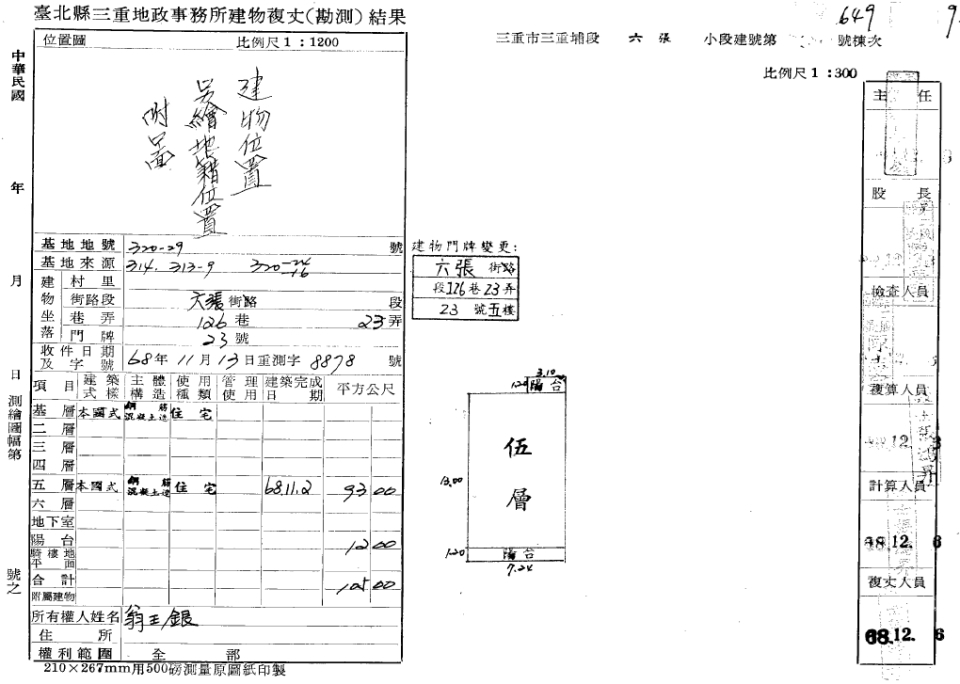 臺北縣三重地政事務所建物複丈(勘測)結果
649
三重市三重埔段 六張 小段建號第 號棟次
位置圖 比例尺1:1200
比例尺1:300
中華民國 年 月 日測繪圖幅第 號之
建物位置
另繪地籍位置
附圖
基地地號 320-29 號
基地來源 314. 313-9 320-24 -16
建物坐落
村里
街路段 六張街路 段
巷弄 126巷 23弄
門牌 23號
收件日期及字號 68年11月13日重測字8878號
項目 建築式樣 主體構造 使用種類 管理使用 建築完成日期 平方公尺
基層 本國式 鋼筋混凝土造 住宅
二層
三層
四層
五層 本國式 鋼筋混凝土造 住宅 68.11.2 93 00
六層
地下室
陽台 12 00
騎樓地平面
合計 105 00
附屬建物
所有權人姓名 翁王銀
住所
權利範圍 全部
210×267mm用500磅測量原圖紙印製
建物門牌變更:
六張 街路
段126巷23弄
23 號五樓
3.10
1.20 陽台
伍層
13.00
1.20 陽台
7.24
主任
股長
檢查人員
複算人員
計算人員
68.12. 6
複丈人員
68.12. 6